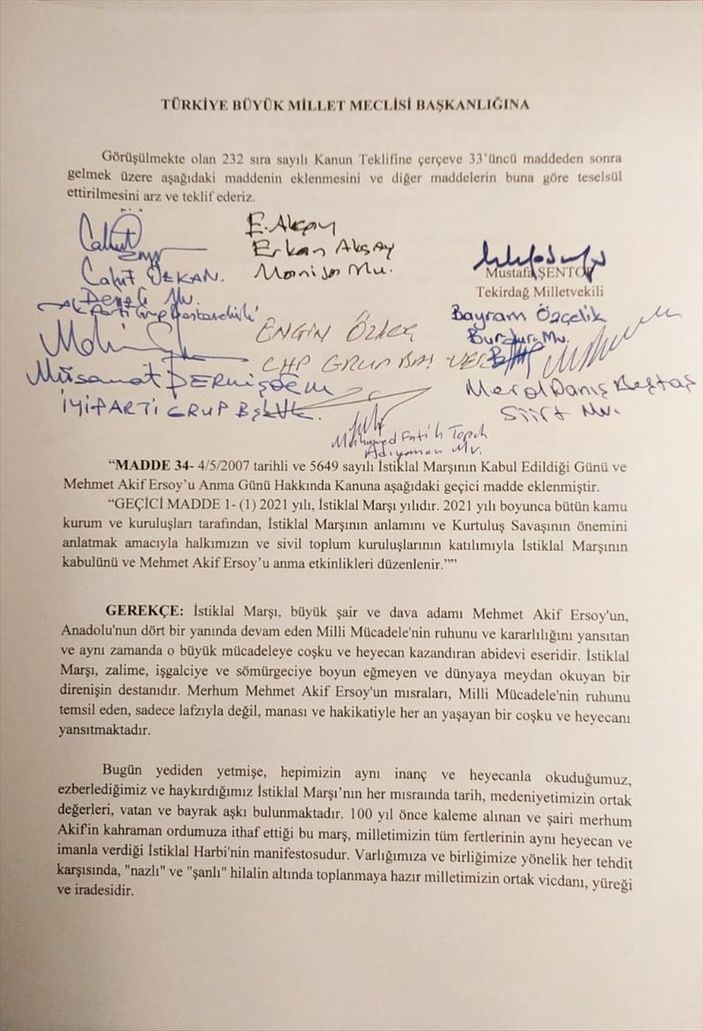 TÜRKİYE BÜYÜK MİLLET MECLİSİ BAŞKANLIĞINA
Görüşülmekte olan 232 sıra sayılı Kanun Teklifine çerçeve 33'üncü maddeden sonra
gelmek üzere aşağıdaki maddenin eklenmesini ve diğer maddelerin buna göre teselsül
ettirilmesini arz ve teklif ederiz.
E. Akçay
Erkan Akçay
Manisa Mv.
Cahit ÖZKAN.
Denizli Mv.
AK Parti Grup Başkanvekili
Mustafa ŞENTOP
Tekirdağ Milletvekili
Bayram Özçelik
Burdur Mv.
ENGİN ÖZKOÇ
CHP GRUP BAŞ VEK
Müsavat DERVİŞOĞLU
İYİ PARTİ GRUP BŞK.V.
Meral Danış Beştaş
Siirt Mv.
Muhammed Fatih Toprak
Adıyaman Mv.
“MADDE 34- 4/5/2007 tarihli ve 5649 sayılı İstiklal Marşının Kabul Edildiği Günü ve
Mehmet Akif Ersoy’u Anma Günü Hakkında Kanuna aşağıdaki geçici madde eklenmiştir.
“GEÇİCİ MADDE 1- (1) 2021 yılı, İstiklal Marşı yılıdır. 2021 yılı boyunca bütün kamu
kurum ve kuruluşları tarafından, İstiklal Marşının anlamını ve Kurtuluş Savaşının önemini
anlatmak amacıyla halkımızın ve sivil toplum kuruluşlarının katılımıyla İstiklal Marşının
kabulünü ve Mehmet Akif Ersoy’u anma etkinlikleri düzenlenir.””
GEREKÇE: İstiklal Marşı, büyük şair ve dava adamı Mehmet Akif Ersoy'un,
Anadolu'nun dört bir yanında devam eden Milli Mücadele'nin ruhunu ve kararlılığını yansıtan
ve aynı zamanda o büyük mücadeleye coşku ve heyecan kazandıran abidevi eseridir. İstiklal
Marşı, zalime, işgalciye ve sömürgeciye boyun eğmeyen ve dünyaya meydan okuyan bir
direnişin destanıdır. Merhum Mehmet Akif Ersoy'un mısraları, Milli Mücadele'nin ruhunu
temsil eden, sadece lafzıyla değil, manası ve hakikatiyle her an yaşayan bir coşku ve heyecanı
yansıtmaktadır.
Bugün yediden yetmişe, hepimizin aynı inanç ve heyecanla okuduğumuz,
ezberlediğimiz ve haykırdığımız İstiklal Marşı’nın her mısraında tarih, medeniyetimizin ortak
değerleri, vatan ve bayrak aşkı bulunmaktadır. 100 yıl önce kaleme alınan ve şairi merhum
Akif'in kahraman ordumuza ithaf ettiği bu marş, milletimizin tüm fertlerinin aynı heyecan ve
imanla verdiği İstiklal Harbi'nin manifestosudur. Varlığımıza ve birliğimize yönelik her tehdit
karşısında, "nazlı" ve "şanlı" hilalin altında toplanmaya hazır milletimizin ortak vicdanı, yüreği
ve iradesidir.